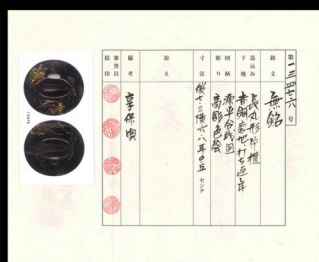 第一三四七六号
銘文 無銘
造込み 長丸形 片櫃
下地 赤銅磨地 打ち返耳
図柄 源平合戦図
彫り 高彫色絵
控え
寸法 縦七・三 横六・八 耳〇・五 センチ
備考 享保頃
審査員
印 印